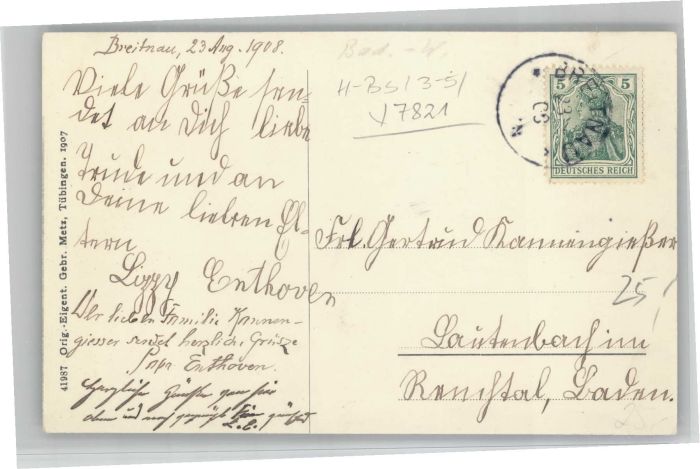 Breitnau, 23 Aug. 1908.
Viele Grüße sen-
det an Dich liebe
Trude und an
Deine lieben El-
tern
Loppy Enthoven
Der lieben Familie Kannen-
giesser sendet herzliche Grüsse
Enthoven.
Herzliche Grüße
und
Bad. - W.
H-BS/3-5/
17821
BREITNAU
23
08
N.
5 5
DEUTSCHES REICH
Frl. Gertrud Kannengießer
25
Lautenbach im
Renchtal, Baden.
25,-
41987 Orig.-Eigent. Gebr. Metz, Tübingen. 1907